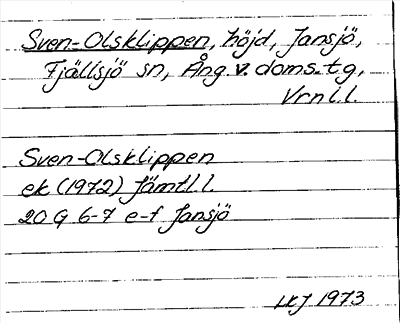 Sven-Olsklippen, höjd, Jansjö,
Fjällsjö sn, Ång. v. doms.-t.g,
Vrnl.l.
Sven-Olsklippen
ek (1972) Jämtl l.
20 G 6-7 e-f Jansjö
LKJ 1973